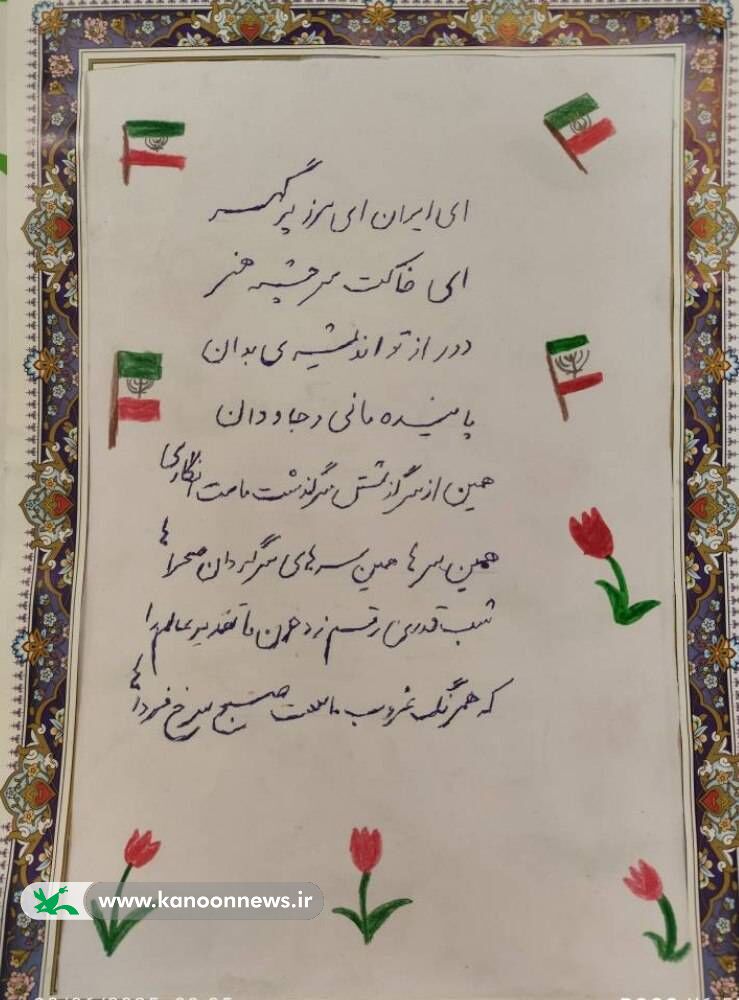 ای ایران ای مرز پر گهر
ای خاکت سرچشمه هنر
دور از تو اندیشه ی بدان
پاینده مانی و جاودان
همین از سرگذشتش سرگذشت ماست انگاری
همین سرها همین سرهای سرگردان صحراها
شب قدری رقم زد خون ما تقدیر عالم را
که همرنگ غروب ماست صبح سرخ فرداها
www.kanoonnews.ir